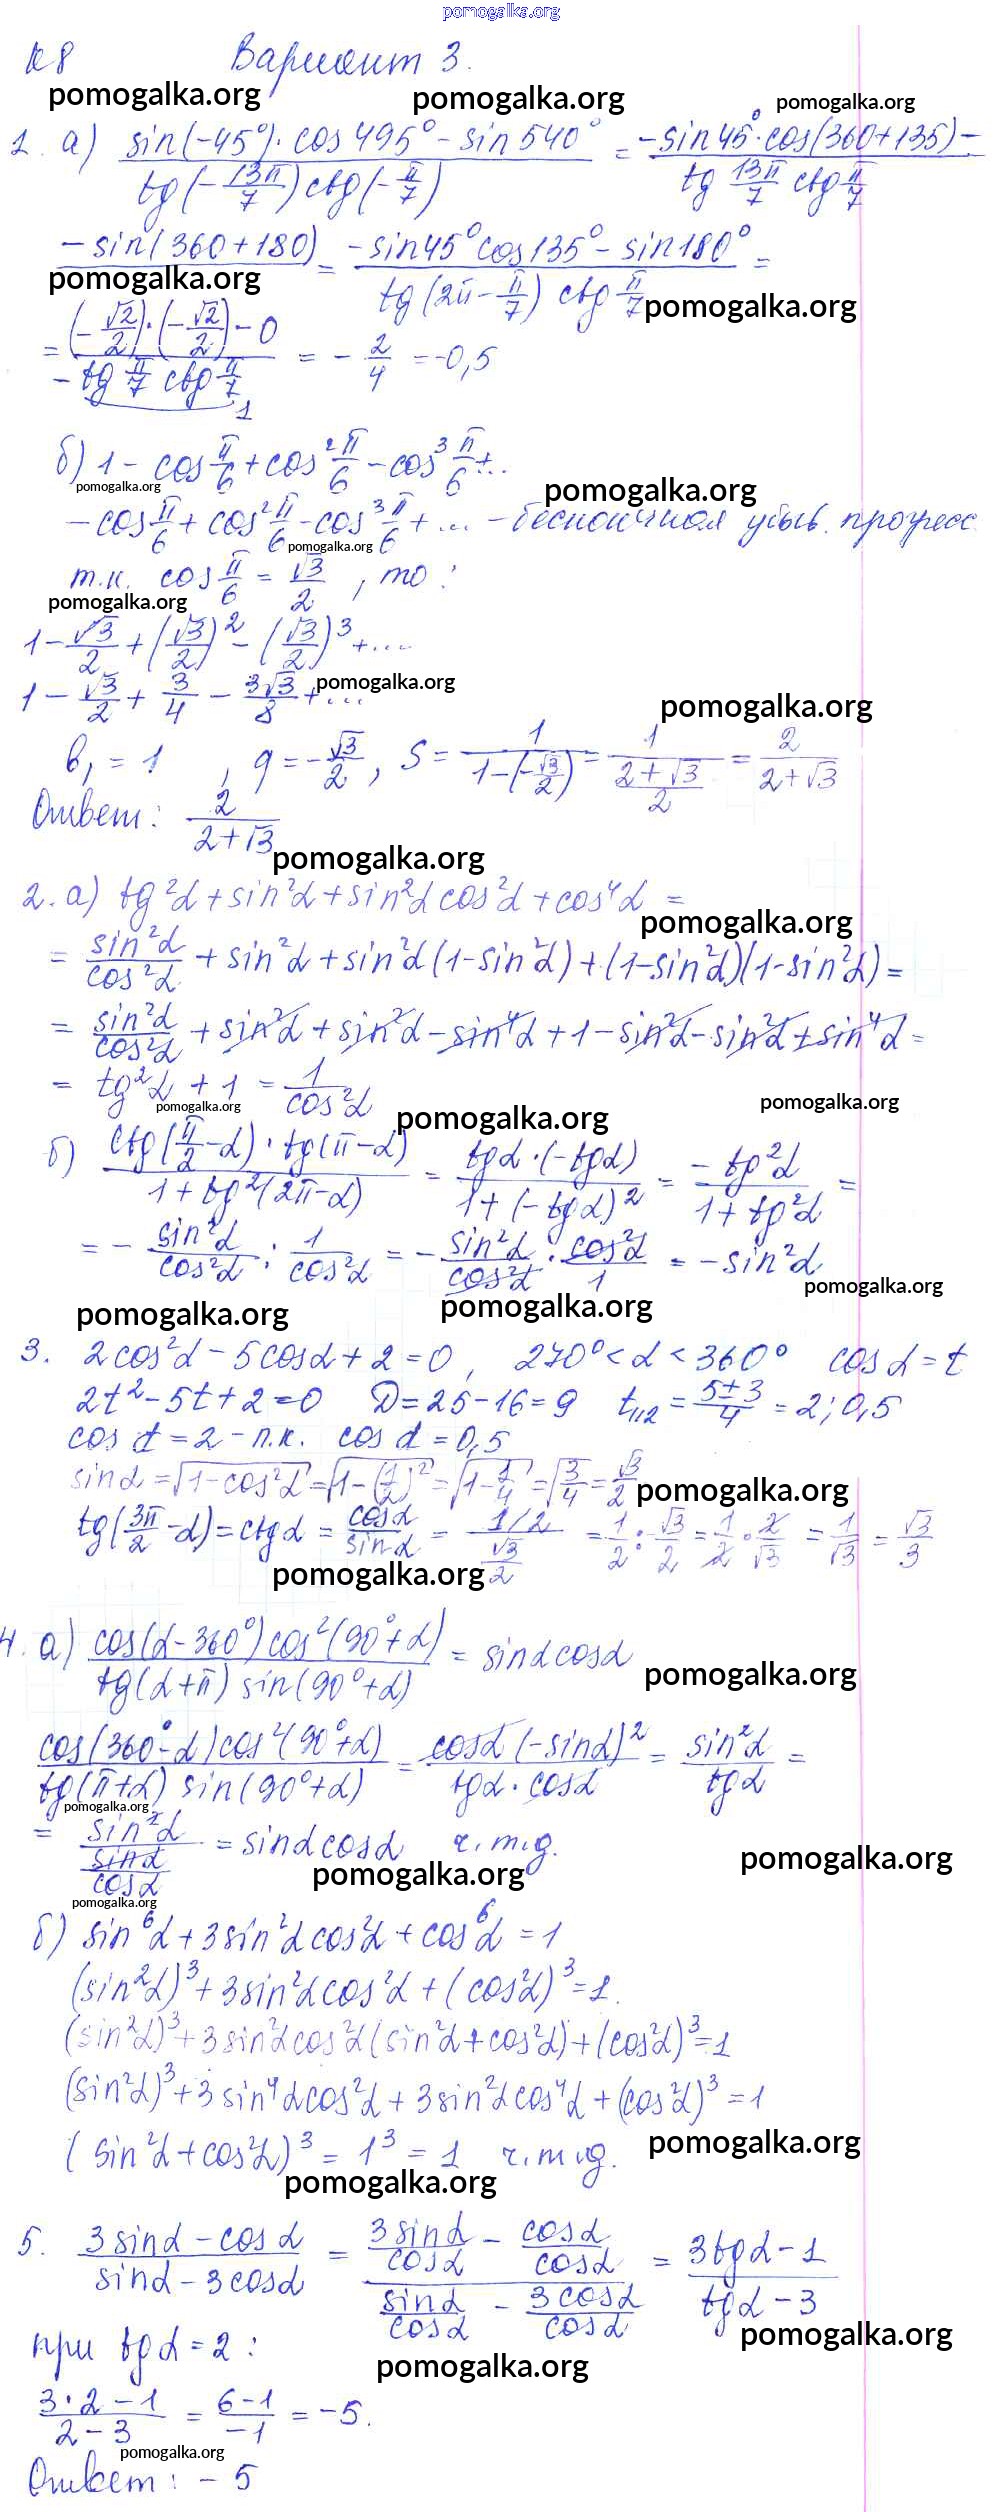 pomogalka.org
К8 Вариант 3.
pomogalka.org pomogalka.org pomogalka.org
1. а) (sin(-45°)·cos 495° - sin 540°)/(tg(-13π/7) ctg(-π/7)) = (-sin 45°·cos(360+135) -
-sin(360+180))/(tg 13π/7 ctg π/7) = (-sin 45° cos 135° - sin 180°)/(tg(2π - π/7) ctg π/7) =
pomogalka.org pomogalka.org
= ((-√2/2)·(-√2/2) - 0)/(-tg π/7 ctg π/7) = -2/4 = -0,5
1
б) 1 - cos π/6 + cos² π/6 - cos³ π/6 + ..
pomogalka.org pomogalka.org
- cos π/6 + cos² π/6 - cos³ π/6 + ... - бесконечная убыв. прогресс
pomogalka.org
т.к. cos π/6 = √3/2, то:
pomogalka.org
1 - √3/2 + (√3/2)² - (√3/2)³ + ...
1 - √3/2 + 3/4 - 3√3/8 + ...
pomogalka.org
pomogalka.org
b₁ = 1, q = -√3/2, S = 1/(1-(-√3/2)) = 1/((2+√3)/2) = 2/(2+√3)
Ответ: 2/(2+√3)
pomogalka.org
2. а) tg²α + sin²α + sin²α cos²α + cos⁴α =
pomogalka.org
= sin²α/cos²α + sin²α + sin²α(1-sin²α) + (1-sin²α)(1-sin²α) =
= sin²α/cos²α + sin²α + sin²α - sin⁴α + 1 - sin²α - sin²α + sin⁴α =
= tg²α + 1 = 1/cos²α
pomogalka.org pomogalka.org pomogalka.org
б) (ctg(π/2-α)·tg(π-α))/(1+tg²(2π-α)) = (tgα·(-tgα))/(1+(-tgα)²) = -tg²α/(1+tg²α) =
= -sin²α/cos²α : 1/cos²α = -sin²α/cos²α · cos²α/1 = -sin²α
pomogalka.org
pomogalka.org pomogalka.org
3. 2cos²α - 5cosα + 2 = 0, 270° < α < 360° cosα = t
2t² - 5t + 2 = 0 D = 25-16 = 9 t₁,₂ = (5±3)/4 = 2; 0,5
cos α = 2 - п.к. cos α = 0,5
sinα = √(1-cos²α) = √(1-(1/2)²) = √(1-1/4) = √(3/4) = √3/2
pomogalka.org
tg(3π/2-α) = ctgα = cosα/sinα = (1/2)/(√3/2) = 1/2 : √3/2 = 1/2 · 2/√3 = 1/√3 = √3/3
pomogalka.org
4. а) (cos(α-360°)cos²(90°+α))/(tg(α+π) sin(90°+α)) = sinα cosα
pomogalka.org
(cos(360°-α)cos²(90°+α))/(tg(π+α) sin(90°+α)) = (cosα(-sinα)²)/(tgα·cosα) = sin²α/tgα =
pomogalka.org
= sin²α/(sinα/cosα) = sinα cosα ч.т.д.
pomogalka.org
pomogalka.org
pomogalka.org
б) sin⁶α + 3sin²α cos²α + cos⁶α = 1
(sin²α)³ + 3sin²α cos²α + (cos²α)³ = 1.
(sin²α)³ + 3sin²α cos²α(sin²α + cos²α) + (cos²α)³ = 1
(sin²α)³ + 3sin⁴α cos²α + 3sin²α cos⁴α + (cos²α)³ = 1
(sin²α + cos²α)³ = 1³ = 1 ч.т.д.
pomogalka.org
pomogalka.org
5. (3sinα - cosα)/(sinα - 3cosα) = (3sinα/cosα - cosα/cosα)/(sinα/cosα - 3cosα/cosα) = (3tgα - 1)/(tgα - 3)
pomogalka.org
при tgα = 2:
pomogalka.org
(3·2 - 1)/(2 - 3) = (6-1)/(-1) = -5.
pomogalka.org
Ответ: -5